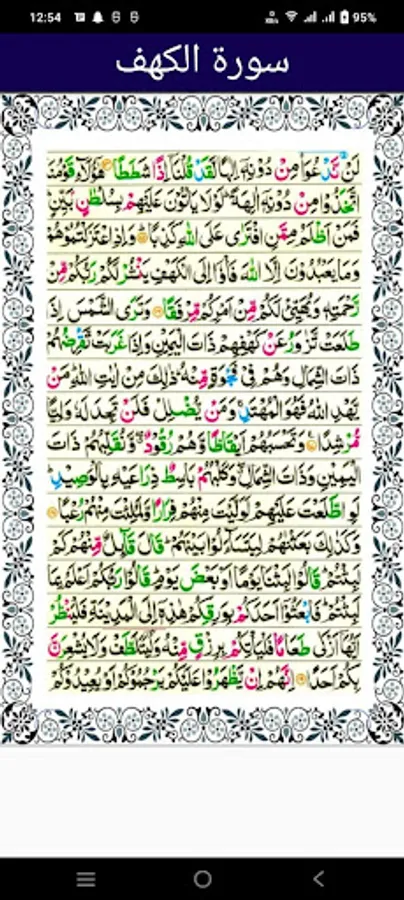 12:54
95%
سورة الكهف
لَنْ نَّدْعُوَا۟ مِنْ دُوْنِهٖۤ اِلٰهًا لَّقَدْ قُلْنَاۤ اِذًا شَطَطًا ۝ هٰۤؤُلَآءِ قَوْمُنَا
اتَّخَذُوْا مِنْ دُوْنِهٖۤ اٰلِهَةً ؕ لَوْ لَا يَاْتُوْنَ عَلَيْهِمْ بِسُلْطٰنٍۭ بَيِّنٍ ؕ
فَمَنْ اَظْلَمُ مِمَّنِ افْتَرٰى عَلَى اللّٰهِ كَذِبًا ؕ ۝ وَاِذِ اعْتَزَلْتُمُوْهُمْ
وَمَا يَعْبُدُوْنَ اِلَّا اللّٰهَ فَاْوٗۤا اِلَى الْكَهْفِ يَنْشُرْ لَكُمْ رَبُّكُمْ مِّنْ
رَّحْمَتِهٖ وَيُهَيِّئْ لَكُمْ مِّنْ اَمْرِكُمْ مِّرْفَقًا ۝ وَتَرَى الشَّمْسَ اِذَا
طَلَعَتْ تَّزٰوَرُ عَنْ كَهْفِهِمْ ذَاتَ الْيَمِيْنِ وَاِذَا غَرَبَتْ تَّقْرِضُهُمْ
ذَاتَ الشِّمَالِ وَهُمْ فِيْ فَجْوَةٍ مِّنْهُ ؕ ذٰلِكَ مِنْ اٰيٰتِ اللّٰهِ ؕ مَنْ
يَّهْدِ اللّٰهُ فَهُوَ الْمُهْتَدِ ۚ وَمَنْ يُّضْلِلْ فَلَنْ تَجِدَ لَهٗ وَلِيًّا
مُّرْشِدًا ۝ وَتَحْسَبُهُمْ اَيْقَاظًا وَّهُمْ رُقُوْدٌ ۖ وَّنُقَلِّبُهُمْ ذَاتَ
الْيَمِيْنِ وَذَاتَ الشِّمَالِ ۖ وَكَلْبُهُمْ بَاسِطٌ ذِرَاعَيْهِ بِالْوَصِيْدِ ؕ
لَوِ اطَّلَعْتَ عَلَيْهِمْ لَوَلَّيْتَ مِنْهُمْ فِرَارًا وَّلَمُلِئْتَ مِنْهُمْ رُعْبًا ۝
وَكَذٰلِكَ بَعَثْنٰهُمْ لِيَتَسَآءَلُوْا بَيْنَهُمْ ؕ قَالَ قَآئِلٌ مِّنْهُمْ كَمْ
لَبِثْتُمْ ؕ قَالُوْا لَبِثْنَا يَوْمًا اَوْ بَعْضَ يَوْمٍ ؕ قَالُوْا رَبُّكُمْ اَعْلَمُ بِمَا
لَبِثْتُمْ ؕ فَابْعَثُوْۤا اَحَدَكُمْ بِوَرِقِكُمْ هٰذِهٖۤ اِلَى الْمَدِيْنَةِ فَلْيَنْظُرْ
اَيُّهَاۤ اَزْكٰى طَعَامًا فَلْيَاْتِكُمْ بِرِزْقٍ مِّنْهُ وَلْيَتَلَطَّفْ وَلَا يُشْعِرَنَّ
بِكُمْ اَحَدًا ۝ اِنَّهُمْ اِنْ يَّظْهَرُوْا عَلَيْكُمْ يَرْجُمُوْكُمْ اَوْ يُعِيْدُوْكُمْ